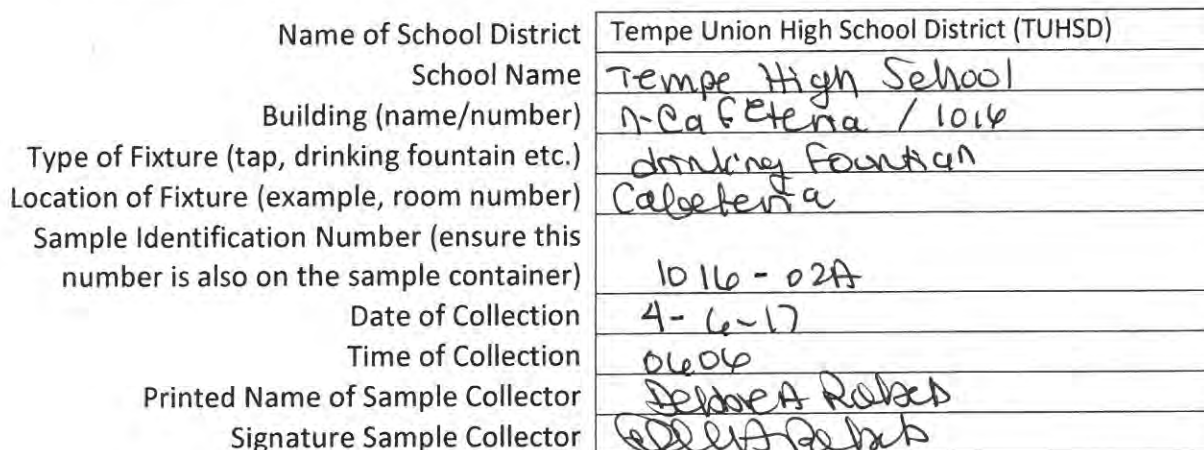 Name of School District Tempe Union High School District (TUHSD)
School Name Tempe High School
Building (name/number) n-Cafeteria / 1016
Type of Fixture (tap, drinking fountain etc.) drinking Fountian
Location of Fixture (example, room number) Cafeteria
Sample Identification Number (ensure this
number is also on the sample container) 1016-02A
Date of Collection 4-6-17
Time of Collection 0606
Printed Name of Sample Collector
Signature Sample Collector